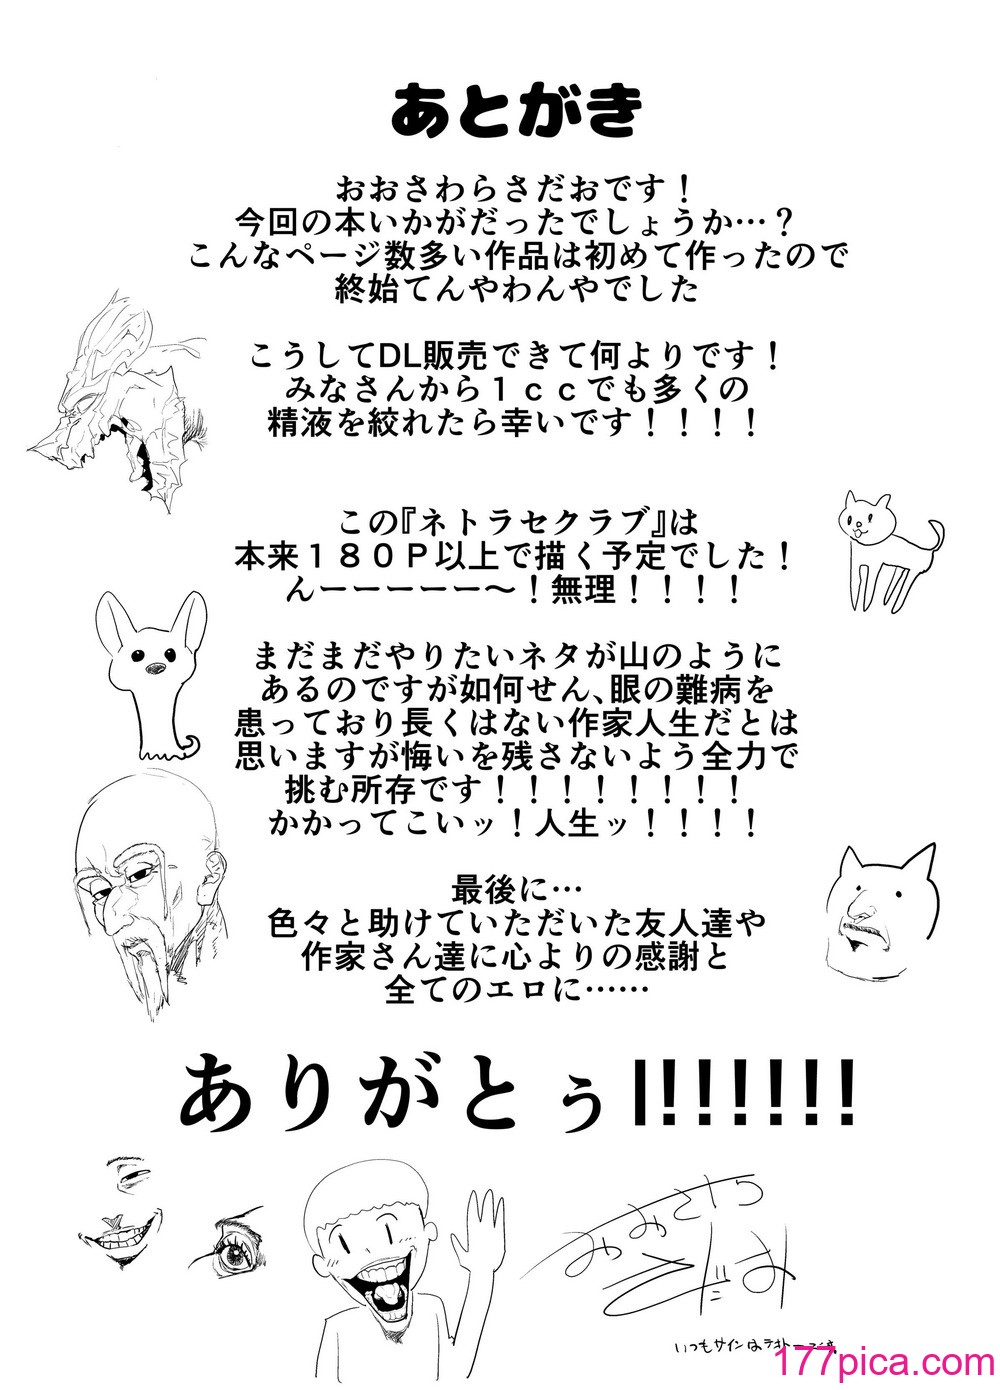 あとがき
おおさわらさだおです！
今回の本いかがだったでしょうか…？
こんなページ数多い作品は初めて作ったので
終始てんやわんやでした
こうしてDL販売できて何よりです！
みなさんから１ｃｃでも多くの
精液を絞れたら幸いです！！！！
この『ネトラセクラブ』は
本来１８０Ｐ以上で描く予定でした！
んーーーーー～！無理！！！！
まだまだやりたいネタが山のように
あるのですが如何せん、眼の難病を
患っており長くはない作家人生だとは
思いますが悔いを残さないよう全力で
挑む所存です！！！！！！！！
かかってこいッ！人生ッ！！！！
最後に…
色々と助けていただいた友人達や
作家さん達に心よりの感謝と
全てのエロに……
ありがとぅ!!!!!!!
おおさわら
さだお
いつもサインはテキトーです。
177pica.com